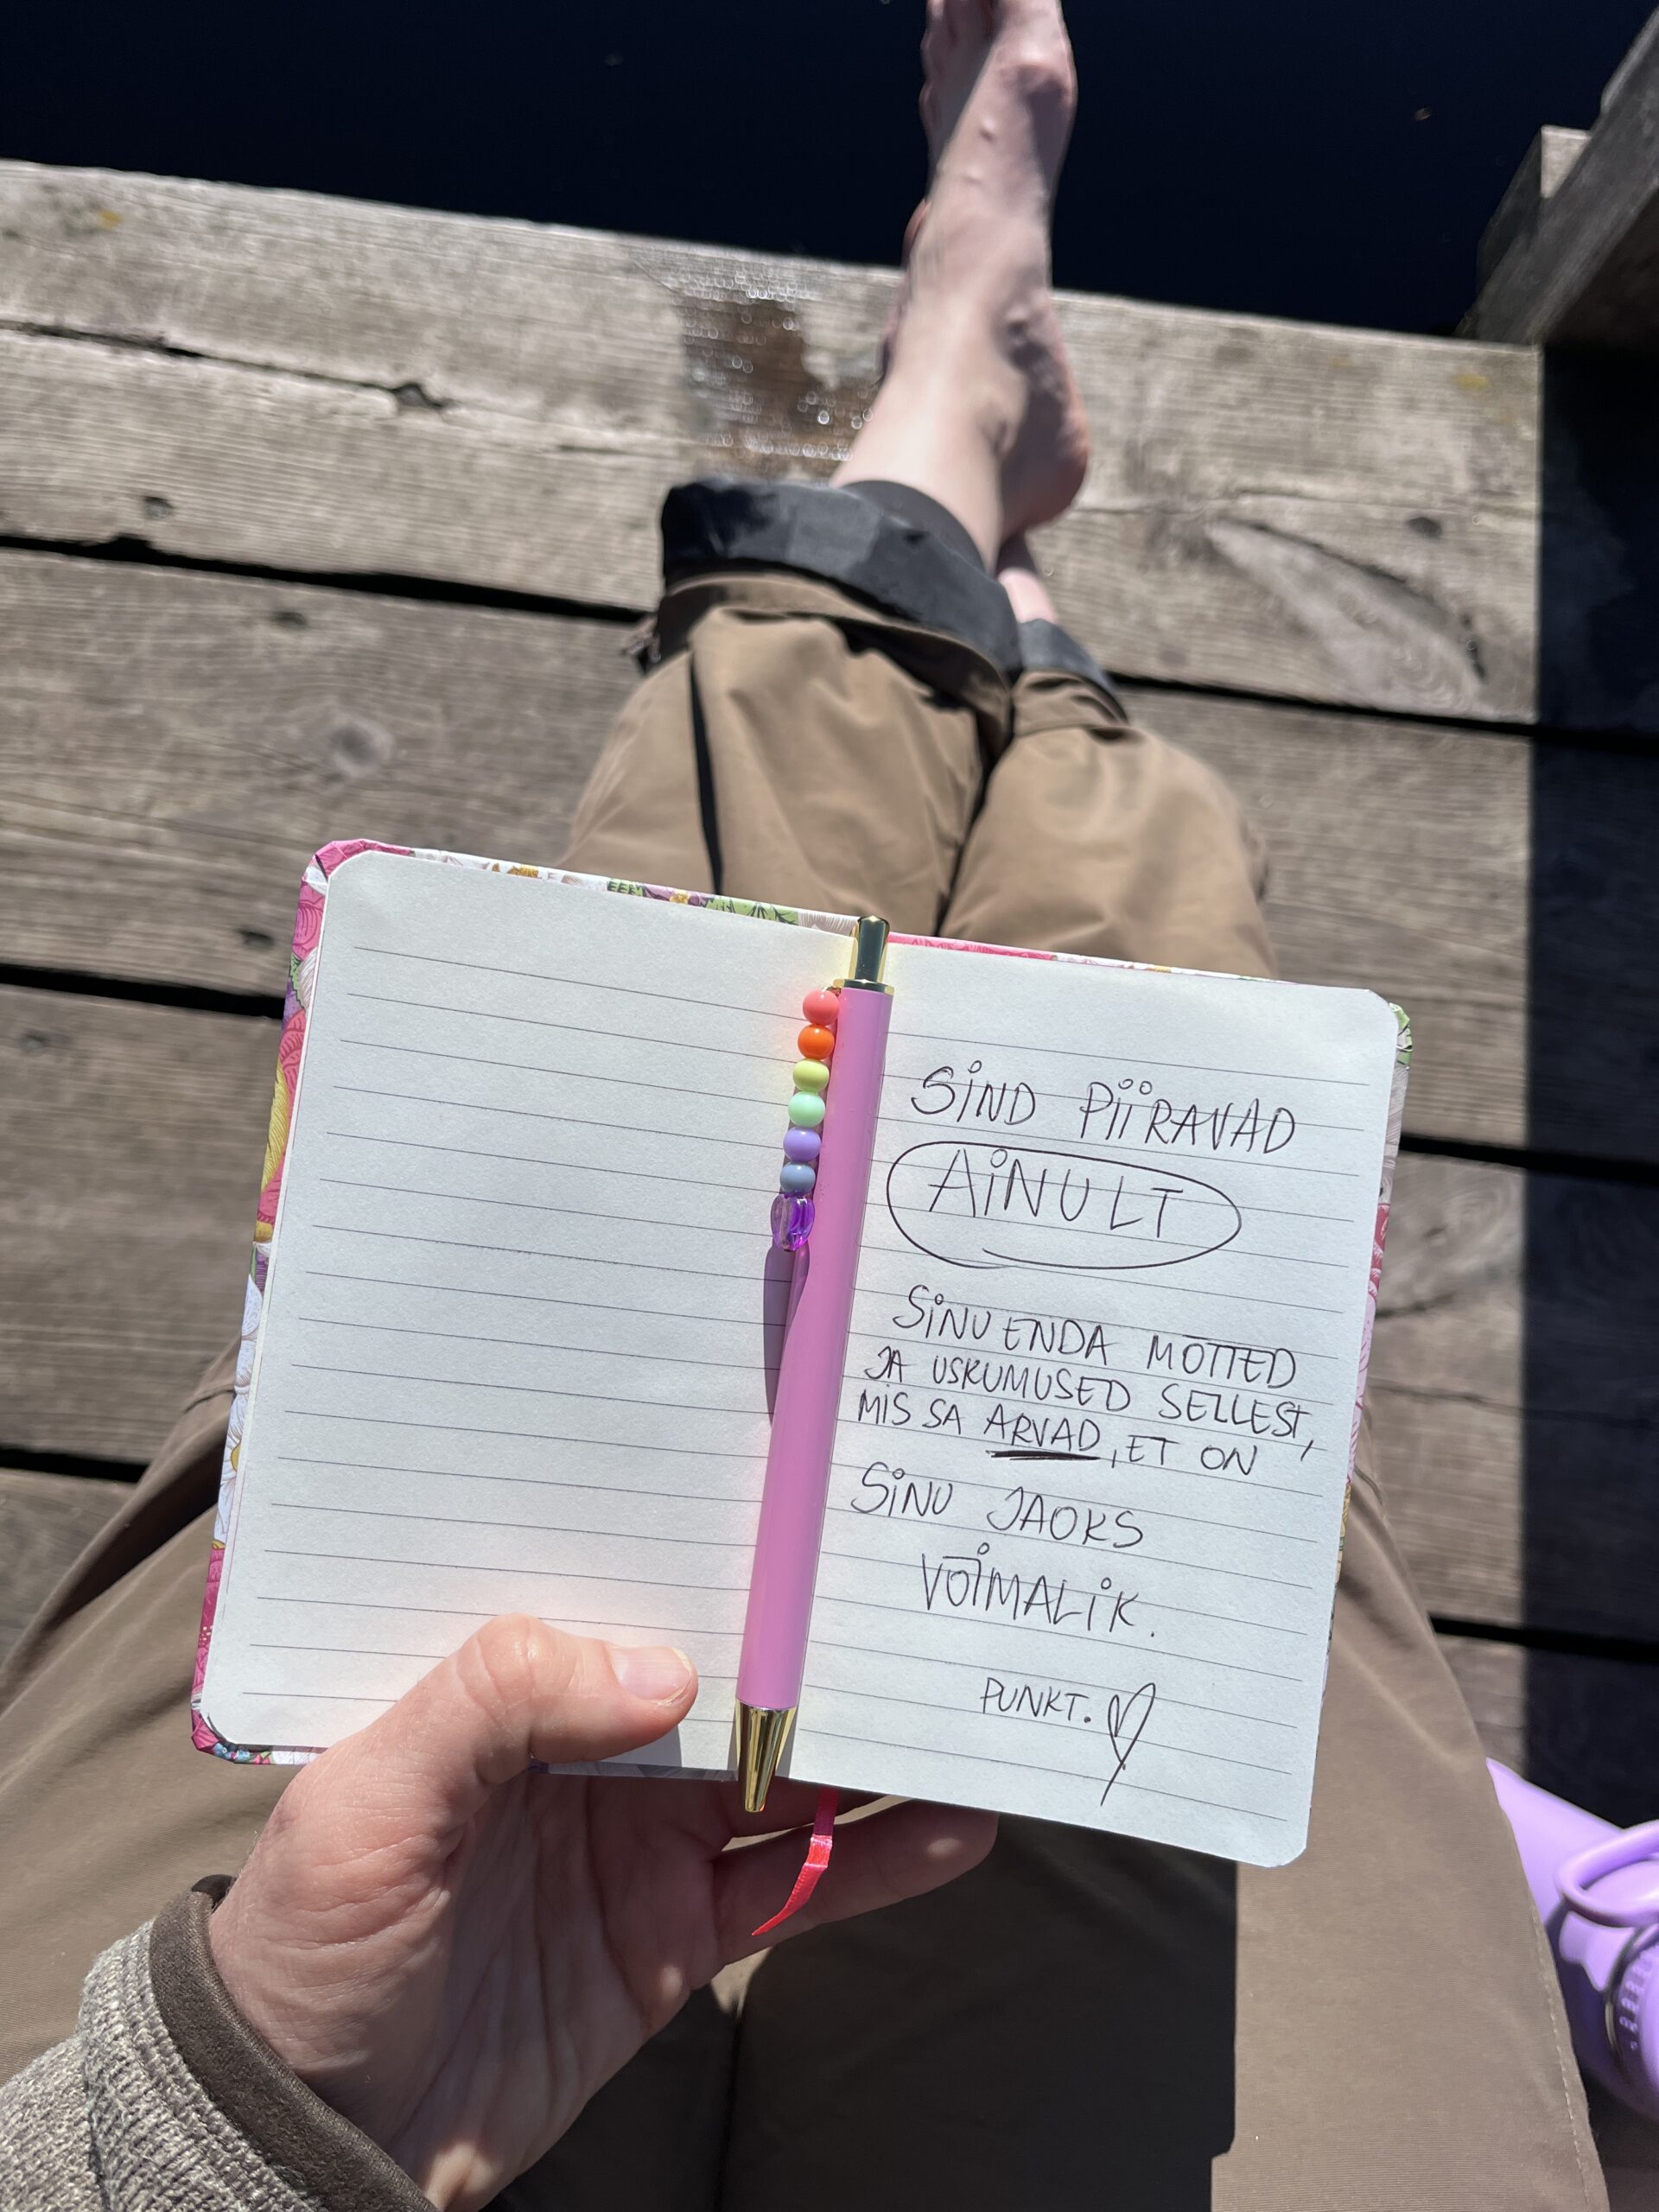 SIND PIIRAVAD
AINULT
SINU ENDA MÕTTED
JA USKUMUSED SELLEST,
MIS SA ARVAD, ET ON
SINU JAOKS
VÕIMALIK.
PUNKT.